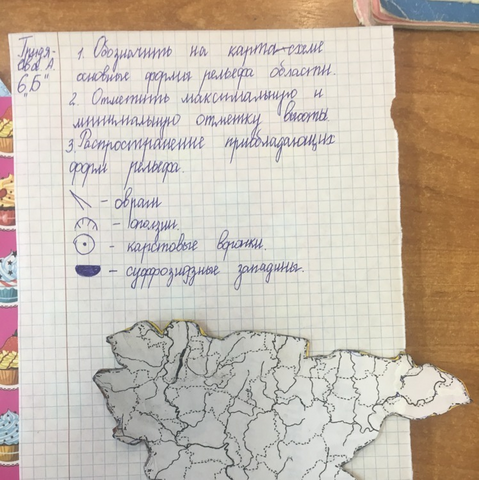 Трудя-
ова А.
6 „Б"
1. Обозначить на карта-схеме
основные формы рельефа области.
2. Отметить максимальную и
минимальную отметку высоты.
3. Распространение приобладающих
форм рельефа.
- овраги
- оползни.
- карстовые воронки.
- суффозиозные западины.